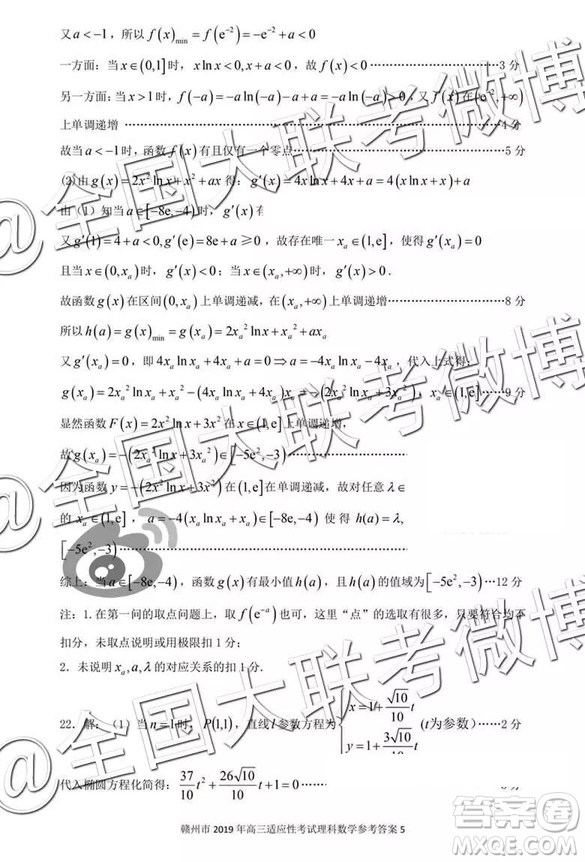 又a<-1，所以 f(x)min = f(e⁻²) = -e⁻² + a < 0
一方面：当 x∈(0,1] 时，x ln x<0, x+a<0，故 f(x)<0 ………………3 分
另一方面，当 x>1 时，f(-a) = -a ln(-a) - a + a = -a ln(-a) > 0，又 f(x) 在 (e⁻², +∞)
上单调递增 ………………4 分
故当 a<-1 时，函数 f(x) 有且仅有一个零点 ………………5 分
(2)由 g(x) = 2x² ln x + x² + ax 得：g′(x) = 4x ln x + 4x + a = 4(x ln x + x) + a
由（1）知当 a∈[-8e,-4) 时，g′(x) 有
又 g′(1) = 4 + a < 0, g′(e) = 8e + a ≥ 0，故存在唯一 xₐ∈(1,e]，使得 g′(xₐ) = 0
且当 x∈(0,xₐ) 时，g′(x)<0；当 x∈(xₐ,+∞) 时，g′(x)>0．
故函数 g(x) 在区间 (0,xₐ) 上单调递减，在 (xₐ,+∞) 上单调递增 ………………8 分
所以 h(a) = g(x)min = g(xₐ) = 2xₐ² ln xₐ + xₐ² + axₐ
又 g′(xₐ) = 0，即 4xₐ ln xₐ + 4xₐ + a = 0 ⇒ a = -4xₐ ln xₐ - 4xₐ，代入上式得：
g(xₐ) = 2xₐ² ln xₐ + xₐ² - (4xₐ ln xₐ + 4xₐ)xₐ = -(2xₐ² ln xₐ + 3xₐ²)，xₐ∈(1,e] …9 分
显然函数 F(x) = 2x² ln x + 3x² 在 x∈(1,e] 上单调递增，
故 g(xₐ) = -(2xₐ² ln xₐ + 3xₐ²) ∈ [-5e²,-3) ………………
因为函数 y = -(2x² ln x + 3x²) 在 (1,e] 在单调递减，故对任意 λ∈
的 xₐ∈(1,e]，a = -4(xₐ ln xₐ + xₐ)∈[-8e,-4) 使得 h(a) = λ,
[-5e²,-3) ………………
综上：当 a∈[-8e,-4)，函数 g(x) 有最小值 h(a)，且 h(a) 的值域为 [-5e²,-3) …12 分
注：1.在第一问的取点问题上，取 f(e⁻ᵃ) 也可以，这里“点”的选取有很多，只要符合均不
扣分，未取点说明或用极限扣 1 分；
2．未说明 xₐ,a,λ 的对应关系的扣 1 分．
22．解：（1）当 n=1 时，P(1,1)，直线 l 参数方程为 { x = 1 + (√10/10)t, y = 1 + (3√10/10)t (t为参数) …2 分
代入椭圆方程化简得：(37/10)t² + (26√10/10)t + 1 = 0 ………
赣州市 2019 年高三适应性考试理科数学参考答案 5
@全国大联考微博
@全国大联考微博
@全国大联考微博